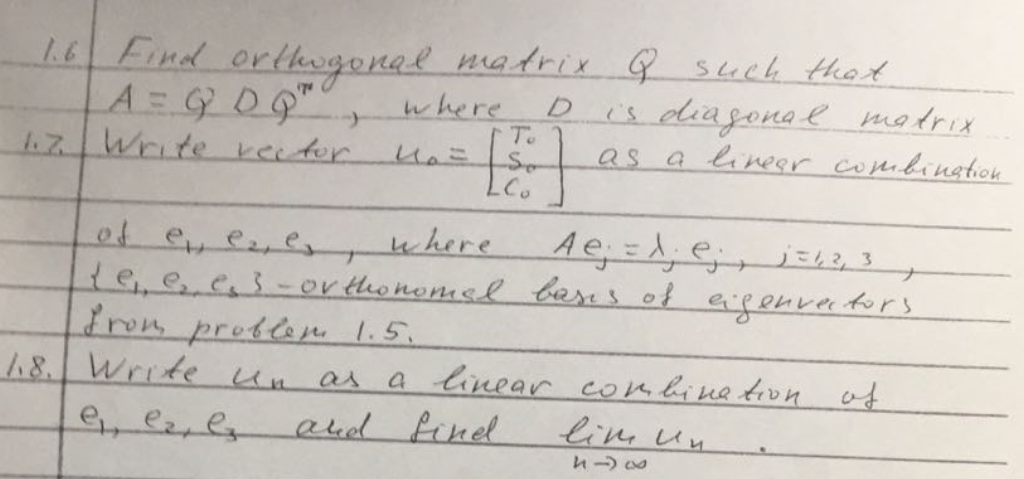 1.6 Find orthogonal matrix Q such that
A = Q D Qᵀ, where D is diagonal matrix
1.7. Write vector u₀ = [T₀ S₀ C₀] as a linear combination
of e₁, e₂, e₃, where Aeⱼ = λⱼ eⱼ, j=1,2,3,
{e₁, e₂, e₃} - orthonomal basis of eigenvectors
from problem 1.5.
1.8. Write uₙ as a linear combination of
e₁, e₂, e₃ and find lim uₙ.
n→∞